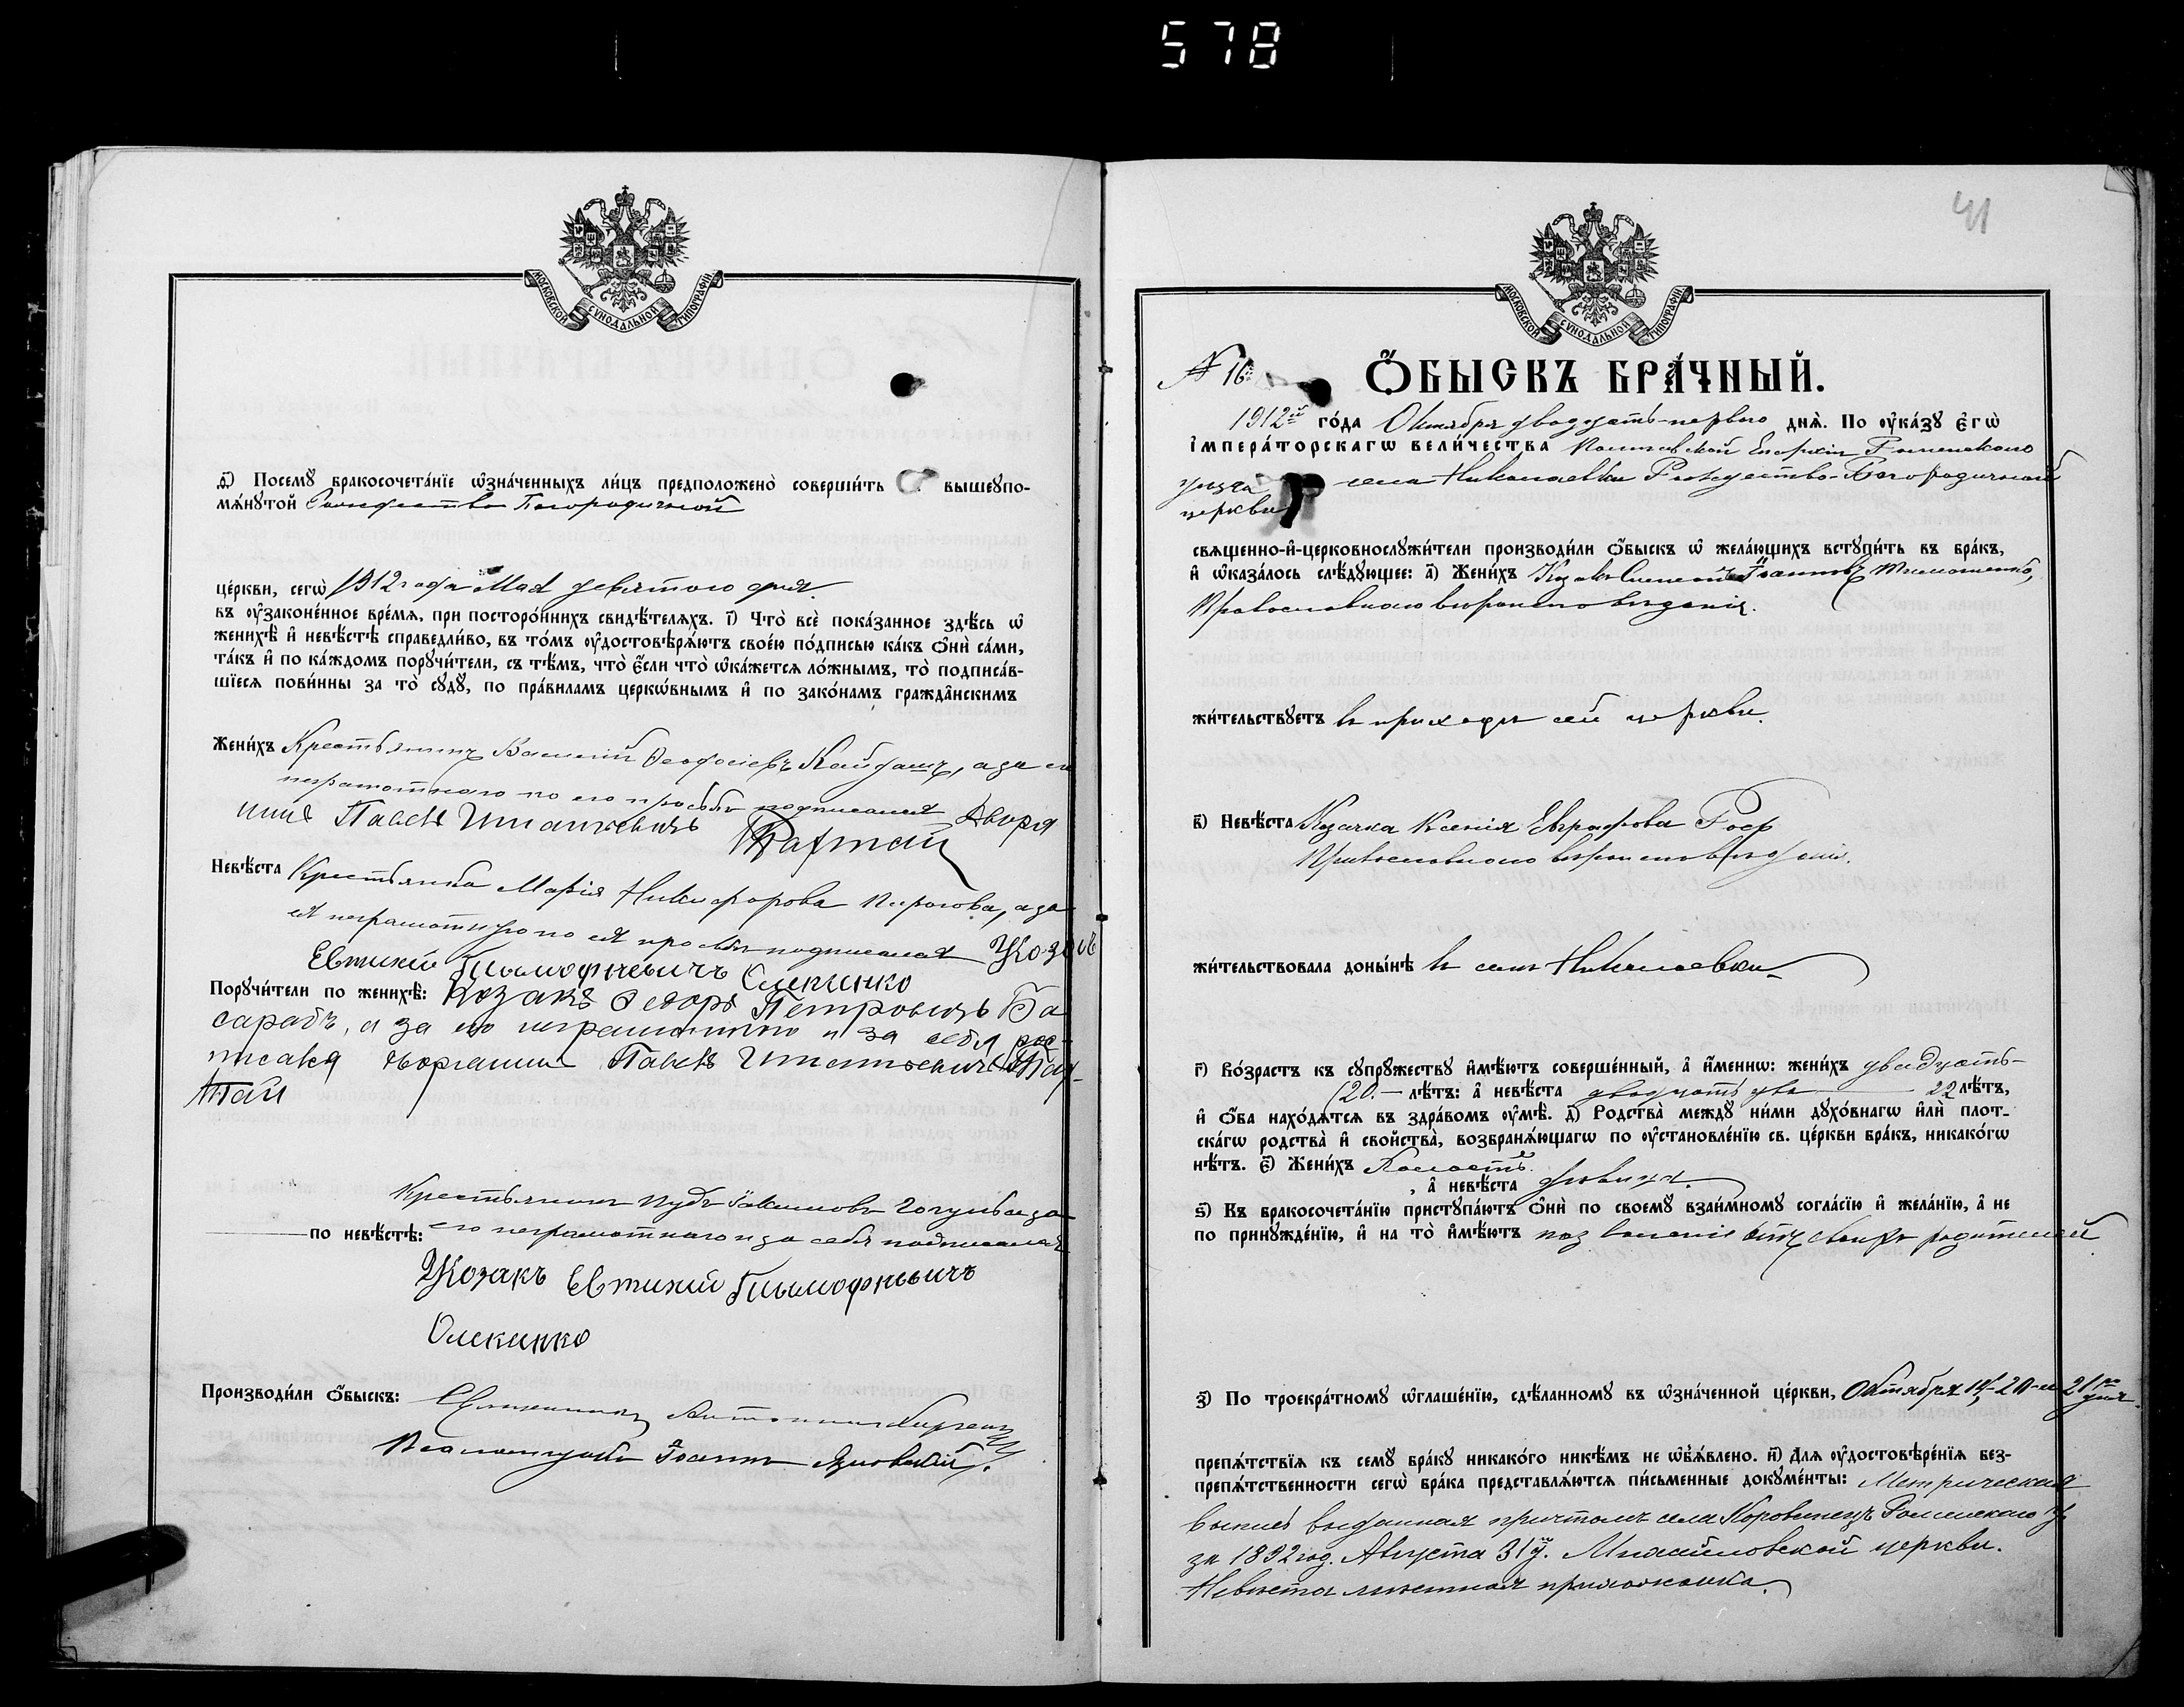 578
МОСКОВСКОЙ СѴНОДАЛЬНОЙ ТИПОГРАФІИ
д҃і) Посемꙋ̀ бракосочета́нїе ѡ҆зна́ченныхъ ли́цъ предположено̀ соверши́ть вышеꙋпо-
мѧ́нꙋтой Рождество Богородичной
це́ркви, сегѡ̀ 1912 года Мая девятого дня.
въ ᲂу҆законе́нное вре́мѧ, при посторо́ннихъ свидѣ́телѧхъ. і҃) Что̀ всѐ пока́занное здѣ́сь ѡ҆
женихѣ̀ и҆ невѣ́стѣ справедли́во, въ то́мъ ᲂу҆достовѣрѧ́ютъ свое́ю по́дписью ка́къ ѻ҆нѝ са́ми,
та́къ и҆ по ка́ждомъ порꙋчи́тели, съ тѣ́мъ, что̀ є҆́сли что̀ ѡ҆ка́жетсѧ ло́жнымъ, то̀ подписа́в-
шїесѧ пови́нны за то̀ сꙋдꙋ̀, по пра́виламъ церкѡ́внымъ и҆ по зако́намъ гражда̂нскимъ
Жени́хъ Крестьянинъ Василій Ѳеодосіевъ Кайдашъ, а за его
неграмотного по его просьбѣ подписался Дворя
нинъ Павелъ Игнатьевичъ
Невѣ́ста Крестьянка Марія Никифорова Пирогова, а за
ея неграмотную по ея просьбѣ подписался Козакъ
Евтихий Тимофѣевичъ Олекинко
Порꙋчи́тели по женихѣ̀: Козакъ Ѳедоръ Петровичъ Ба
сарабъ, а за его неграмотного и за себя рос-
писался дворянинъ Павелъ Игнатьевичъ
Крестьянинъ Іакимовъ а за
по невѣ́стѣ: его неграмотного и за себя подписался
Козакъ Евтихий Тимофѣевичъ
Олекинко
Производи́ли ѻ҆́быскъ: Священникъ Антоній
Псаломщикъ Іоаннъ
41
МОСКОВСКОЙ СѴНОДАЛЬНОЙ ТИПОГРАФІИ
№ 16
Ѻ҆́БЫСКЪ БРА́ЧНЫЙ.
1912й го́да Октября двадцать-первого днѧ̀. По ᲂу҆ка́зꙋ є҆гѡ̀
і҆мпера́торскагѡ вели́чества Полтавской Епархіи Роменского
уѣзда села Николаевки Рождество-Богородичной
церкви
свѧще́нно-и҆-церковнослꙋжи́тели производи́ли ѻ҆́быскъ ѡ҆ жела́ющихъ встꙋпи́ть въ бра́къ,
и҆ ѡ҆каза́лось слѣ́дꙋющее: а҃) Жени́хъ Козакъ Симеонъ Іоанновъ Тимошенко,
Православного вѣроисповѣданія.
жи́тельствꙋетъ въ приходѣ сей церкви.
в҃) Невѣ́ста Козачка Ксенія Евграфова
Православного вѣроисповѣданія.
жи́тельствовала доны́нѣ въ селѣ Николаевки
г҃) Во́зрастъ къ сꙋпрꙋ́жествꙋ и҆мѣ́ютъ соверше́нный, а҆ и҆́меннѡ: жени́хъ двадцать-
20. — лѣ́тъ: а҆ невѣ́ста двадцать два 22 лѣ́тъ,
и҆ ѻ҆́ба нахо́дѧтсѧ въ здра́вомъ ᲂу҆мѣ̀. д҃) Родства̀ междꙋ̀ ни́ми дꙋхо́внагѡ и҆лѝ плот-
ска́гѡ родства̀ и҆ свойства̀, возбранѧ́ющагѡ по ᲂу҆становле́нїю св. це́ркви бра́къ, никако́гѡ
нѣ́тъ. є҃) Жени́хъ Холостъ.
, а҆ невѣ́ста дѣвица.
ѕ҃) Къ бракосочета́нїю пристꙋпа́ютъ ѻ҆нѝ по своемꙋ̀ взаи́мномꙋ согла́сїю и҆ жела́нїю, а҆ не
по принꙋжде́нїю, и҆ на то̀ и҆мѣ́ютъ позволеніе отъ своихъ родителей
з҃) По троекра́тномꙋ ѡ҆глаше́нїю, сдѣ́ланномꙋ въ ѡ҆зна́ченной це́ркви, Октября 14, 20-и 21го
дня.
препѧ́тствїѧ къ семꙋ̀ бра́кꙋ никако́гѡ никѣ́мъ не ѡ҆б̾ѧ́влено. и҃) Длѧ ᲂу҆достовѣре́нїѧ без-
препѧ́тственности сегѡ̀ бра́ка представлѧ́ютсѧ пи́сьменные докꙋме́нты: Метрическая
выпись выданная причтомъ села Коровинецъ Роменского у.
за 1892 год. Августа 31 Михайловской церкви.
Невѣста мѣстная прихожанка.